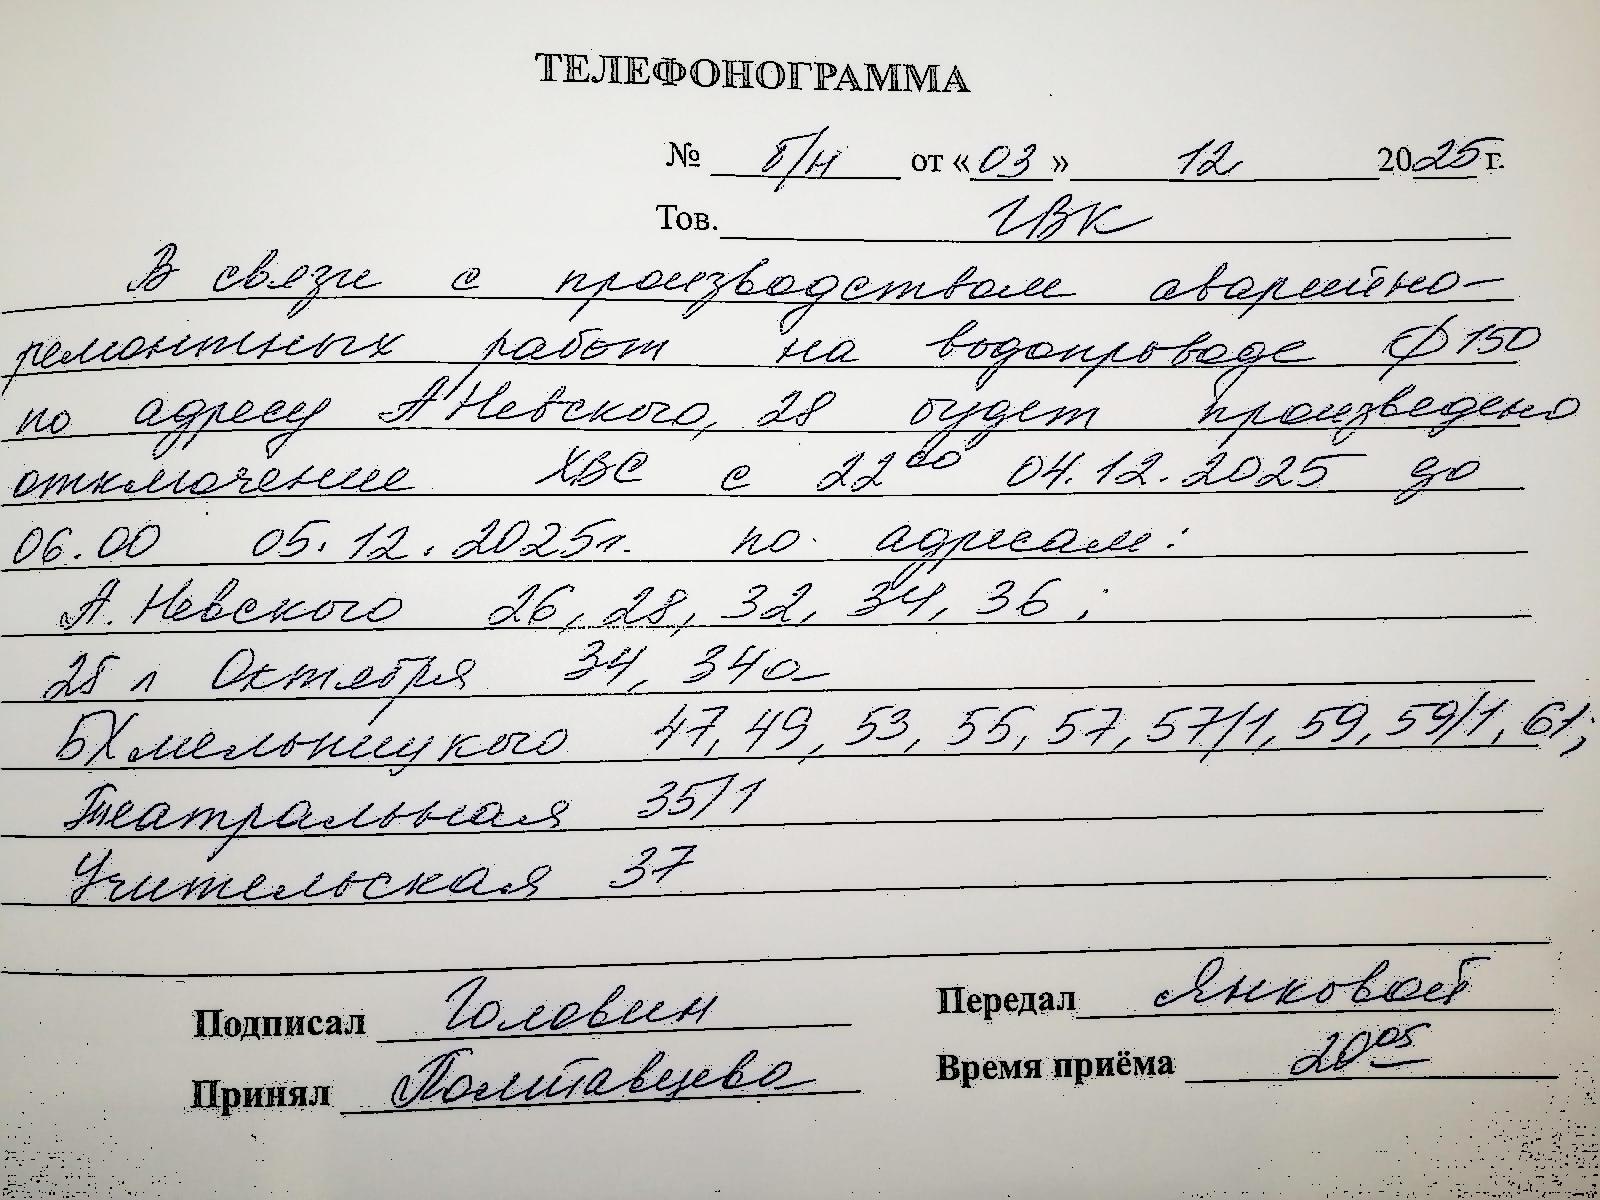 ТЕЛЕФОНОГРАММА
№ б/н от «03» 12 2025 г.
Тов. ГВК
В связи с производством аварийно-
ремонтных работ на водопроводе Ф150
по адресу А.Невского, 28 будет произведено
отключение ХВС с 22⁰⁰ 04.12.2025 до
06.00 05.12.2025г. по адресам:
А. Невского 26, 28, 32, 34, 36;
25 л Октября 34, 34а
БХмельницкого 47, 49, 53, 55, 57, 57/1, 59, 59/1, 61;
Театральная 35/1
Учительская 37
Подписал Головин Передал Янковой
Принял Полтавцева Время приёма 20⁰⁵